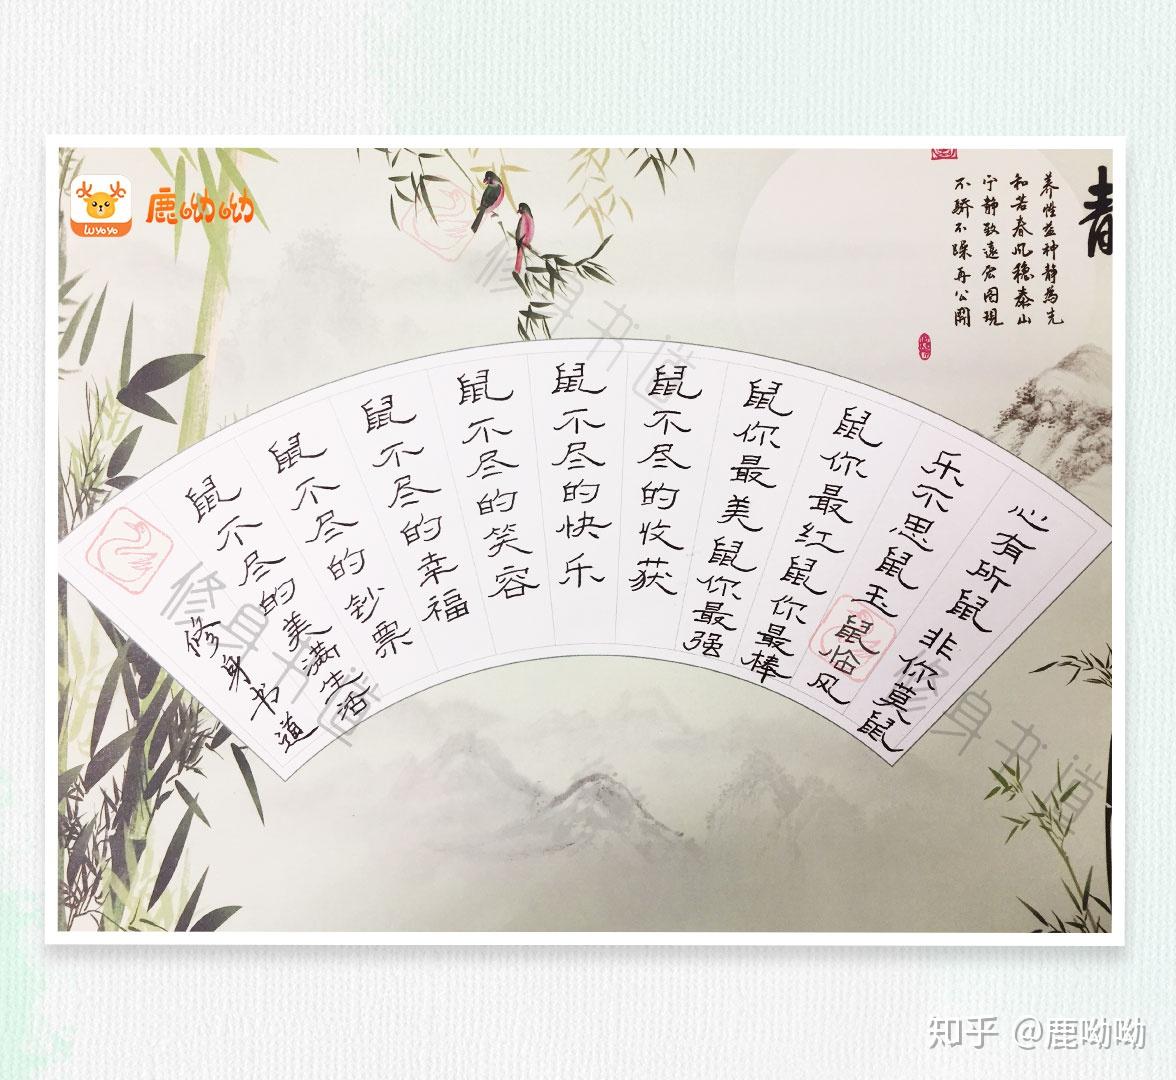 鹿呦呦
Luyoyo
养性益神静為先
和若春风穩泰山
宁静致遠宏图現
不骄不躁再公開
心有所鼠 非你莫鼠
乐不思鼠 玉鼠临风
鼠你最红 鼠你最棒
鼠你最美 鼠你最强
鼠不尽的收获
鼠不尽的快乐
鼠不尽的笑容
鼠不尽的幸福
鼠不尽的钞票
鼠不尽的美满生活
修身书道
修身书道
修身书道
修身书道
知乎 @鹿呦呦